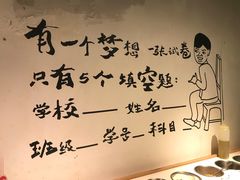 有一个梦想 一张试卷
只有5个填空题:
学校——姓名——
班级——学号—科目—